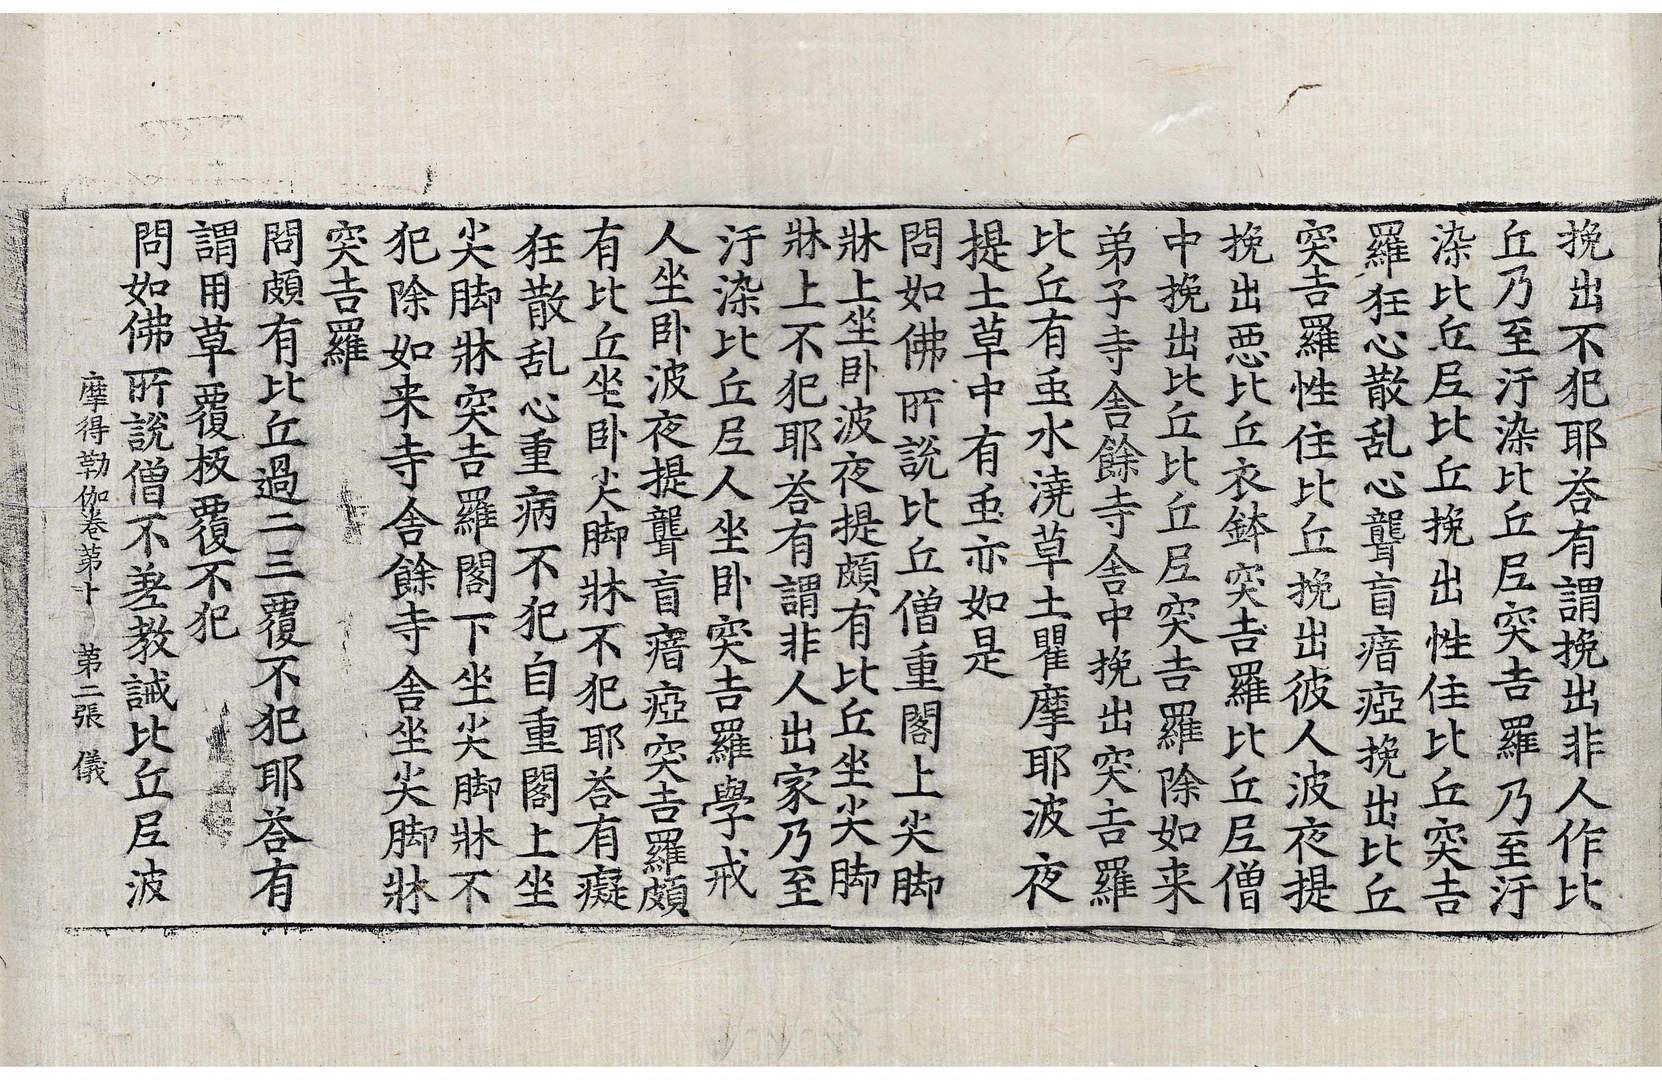 挽出不犯耶荅有謂挽出非人作比
丘乃至汙染比丘尼突吉羅乃至汙
染比丘尼比丘挽出性住比丘突吉
羅狂心散乱心聾盲瘖瘂挽出比丘
突吉羅性住比丘挽出彼人波夜提
挽出惡比丘衣鉢突吉羅比丘尼僧
中挽出比丘比丘尼突吉羅除如来
弟子寺舍餘寺舍中挽出突吉羅
比丘有䖝水澆草土瞿摩耶波夜
提土草中有䖝亦如是
問如佛所說比丘僧重閣上尖脚
牀上坐卧波夜提頗有比丘坐尖脚
牀上不犯耶荅有謂非人出家乃至
汙染比丘尼人坐卧突吉羅學戒
人坐卧波夜提聾盲瘖瘂突吉羅頗
有比丘坐卧尖脚牀不犯耶荅有癡
狂散乱心重病不犯自重閣上坐
尖脚牀突吉羅閣下坐尖脚牀不
犯除如来寺舍餘寺舍坐尖脚牀
突吉羅
問頗有比丘過二三覆不犯耶荅有
謂用草覆板覆不犯
問如佛所說僧不差教誡比丘尼波
摩得勒伽卷第十　第二張　儀